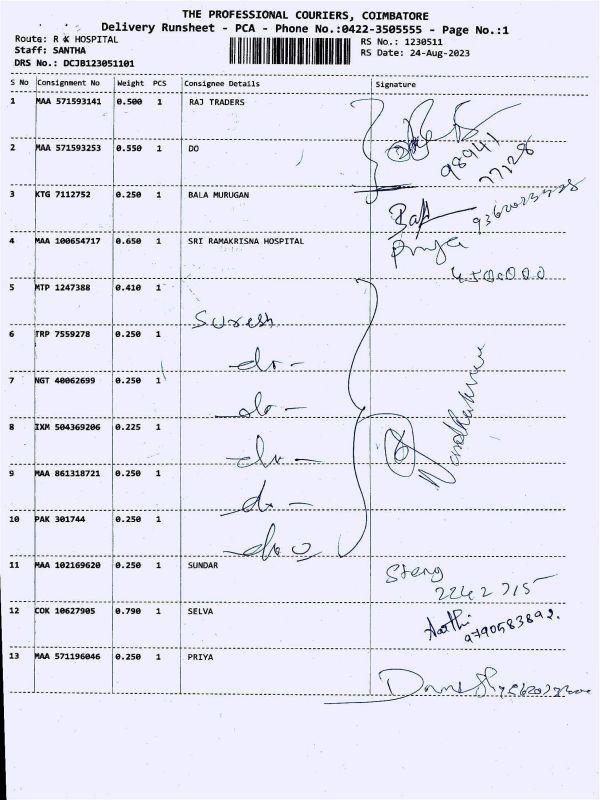 THE PROFESSIONAL COURIERS, COIMBATORE
Delivery Runsheet - PCA - Phone No.:0422-3505555 - Page No.:1
Route: R K HOSPITAL RS No.: 1230511
Staff: SANTHA RS Date: 24-Aug-2023
DRS No.: DCJB123051101
S No Consignment No Weight PCS Consignee Details Signature
1 MAA 571593141 0.500 1 RAJ TRADERS
98941
77128
2 MAA 571593253 0.550 1 DO
3 KTG 7112752 0.250 1 BALA MURUGAN
4 MAA 100654717 0.650 1 SRI RAMAKRISNA HOSPITAL
4500000
5 MTP 1247388 0.410 1 Suresh
6 TRP 7559278 0.250 1 do -
7 NGT 40062699 0.250 1 do -
8 IXM 504369206 0.225 1 do -
9 MAA 861318721 0.250 1 do -
10 PAK 301744 0.250 1 do
11 MAA 102169620 0.250 1 SUNDAR
2242715
12 COK 10627905 0.790 1 SELVA Aarthi
9790583892.
13 MAA 571196046 0.250 1 PRIYA